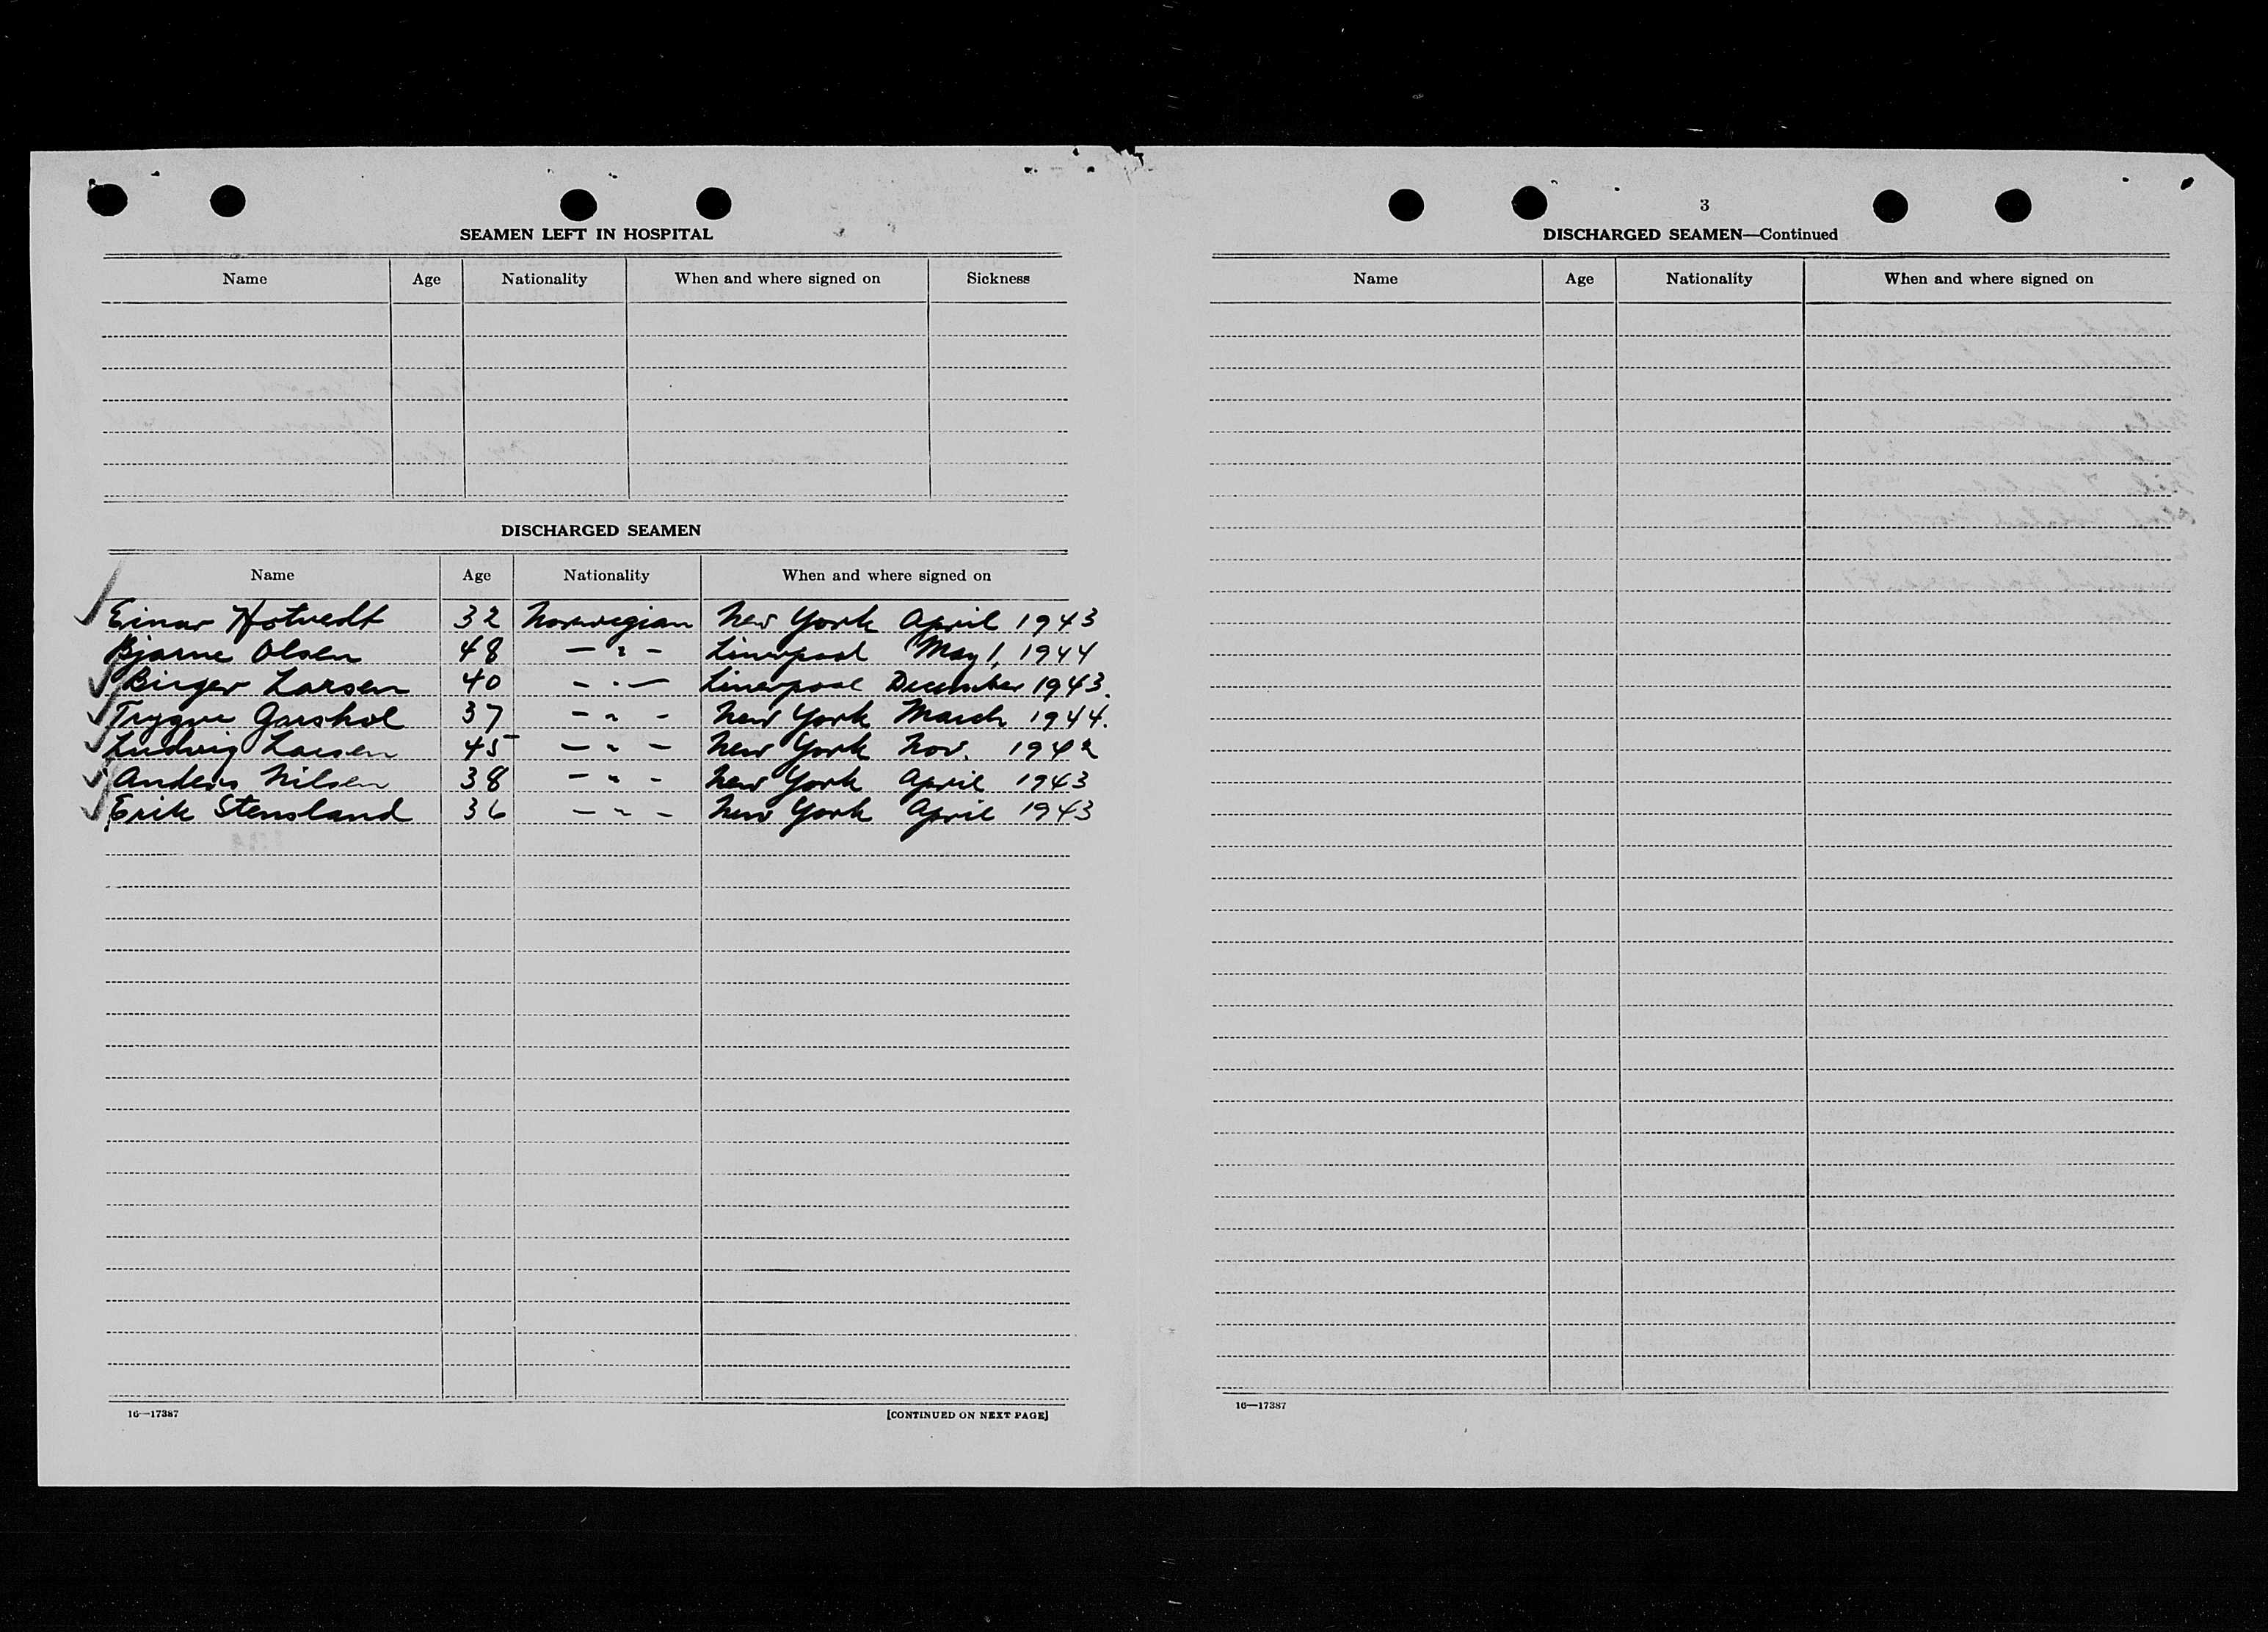 SEAMEN LEFT IN HOSPITAL
Name Age Nationality When and where signed on Sickness
DISCHARGED SEAMEN
Name Age Nationality When and where signed on
Einar Hotvedt 32 Norwegian New York April 1943
Bjarne Olsen 48 — " — Liverpool May 1, 1944
Birger Larsen 40 — " — Liverpool December 1943.
Trygve Garshol 37 — " — New York March 1944.
Ludwig Larsen 45 — " — New York Nov. 1942
Anders Nilsen 38 — " — New York April 1943
Erik Stensland 36 — " — New York April 1943
16—17387 [CONTINUED ON NEXT PAGE]
3
DISCHARGED SEAMEN—Continued
Name Age Nationality When and where signed on
16—17387